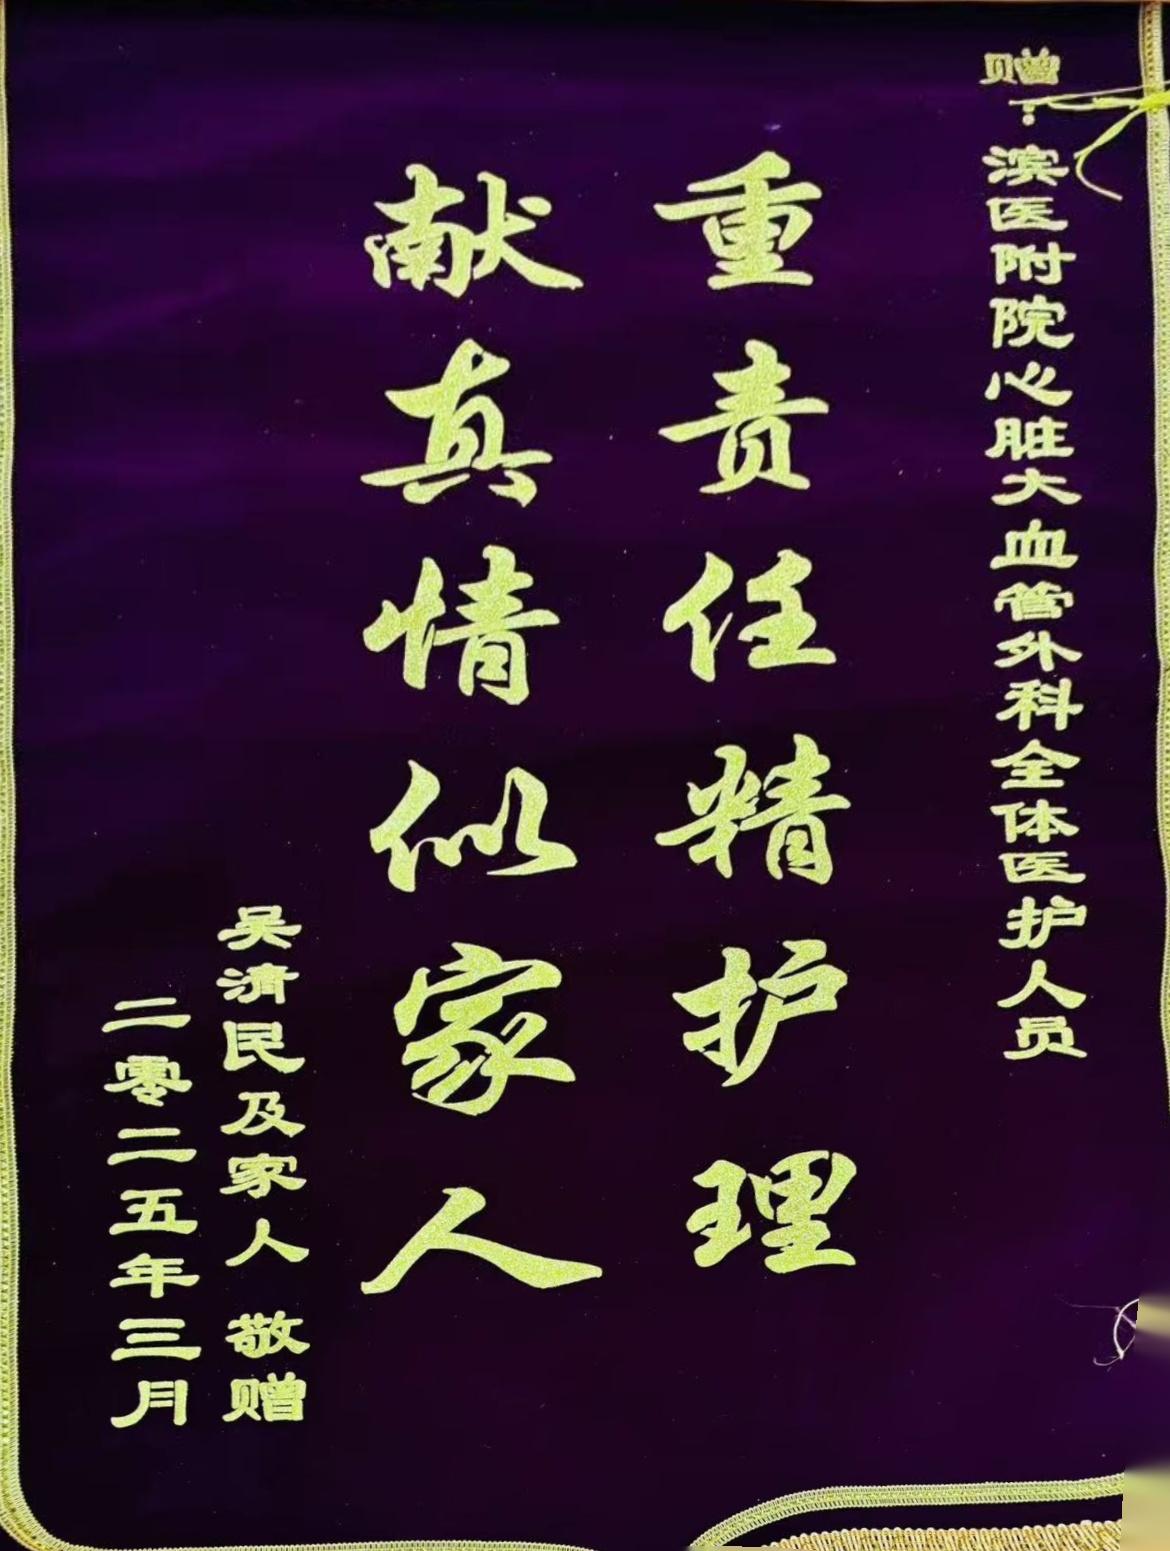 赠：滨医附院心脏大血管外科全体医护人员
重责任精护理
献真情似家人
吴清民及家人 敬赠
二零二五年三月